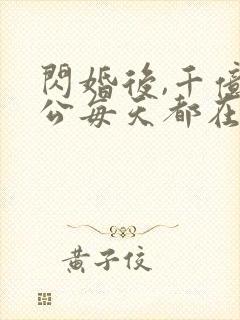 閃婚後,千億
公每天都在
黃子佼